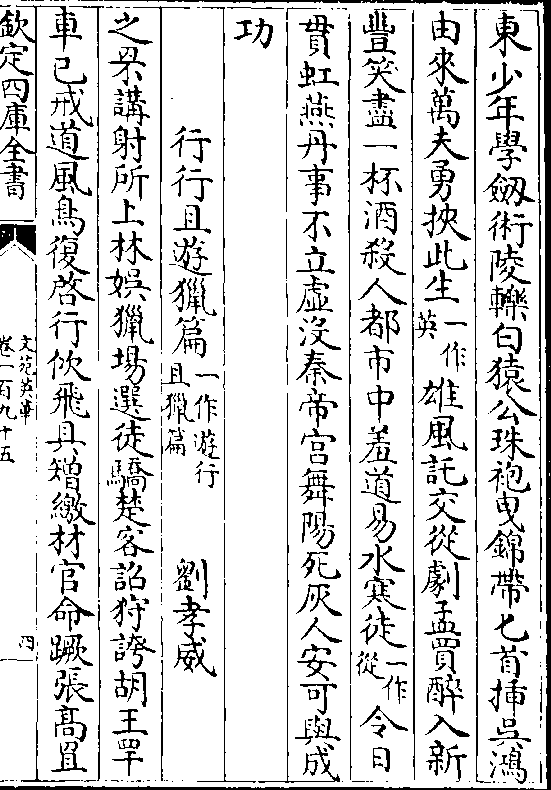 東少年學劒術陵轢白猿公珠袍曳錦帶匕首揷吳鴻
由來萬夫勇挾此生一作英雄風託交從劇孟買醉入新
豐笑盡一杯酒殺人都市中羞道易水寒徒一作從令日
貫虹燕丹事不立虛沒秦帝宫舞陽死灰人安可與成
功
行行且遊獵篇一作遊行且獵篇 劉孝威
之罘講射所上林娯獵場選徒驕楚客詔狩誇胡王罕
車已戒道風鳥復啓行佽飛具矰繳材官命蹶張髙罝
欽定四庫全書
文苑英華
卷一百九十五
四